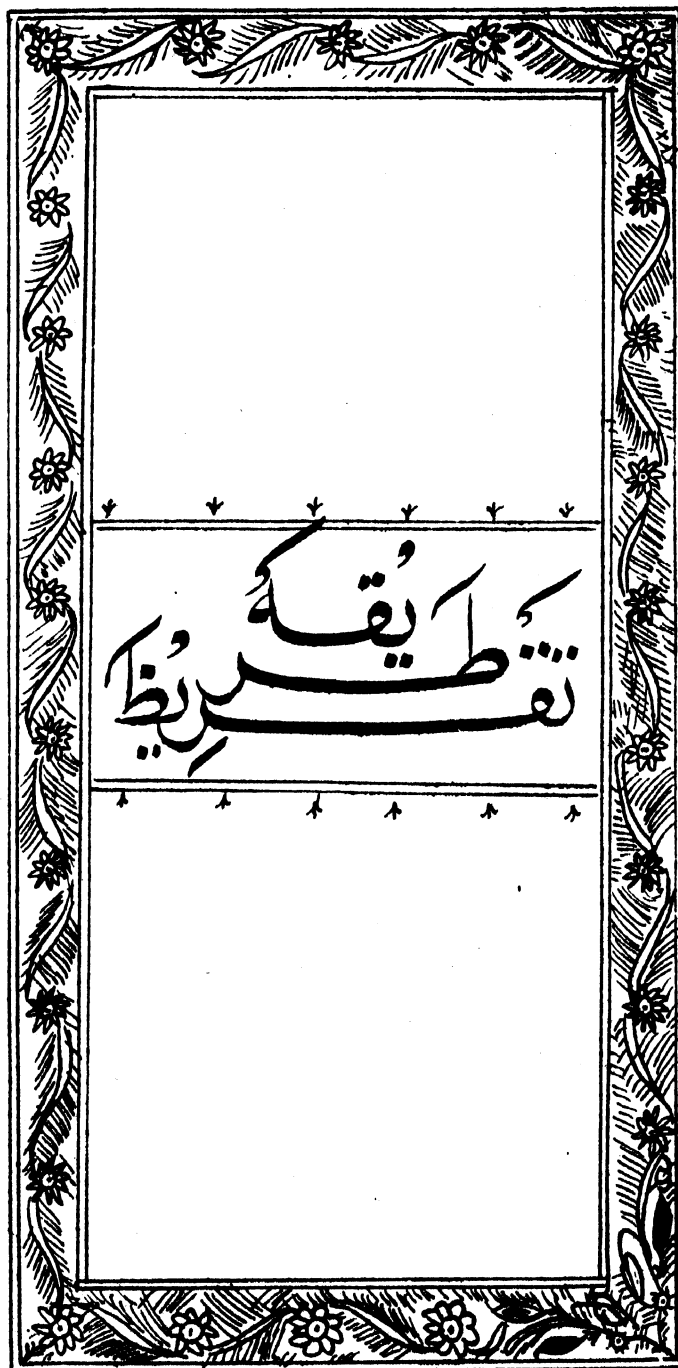 طریقہ تقریظ